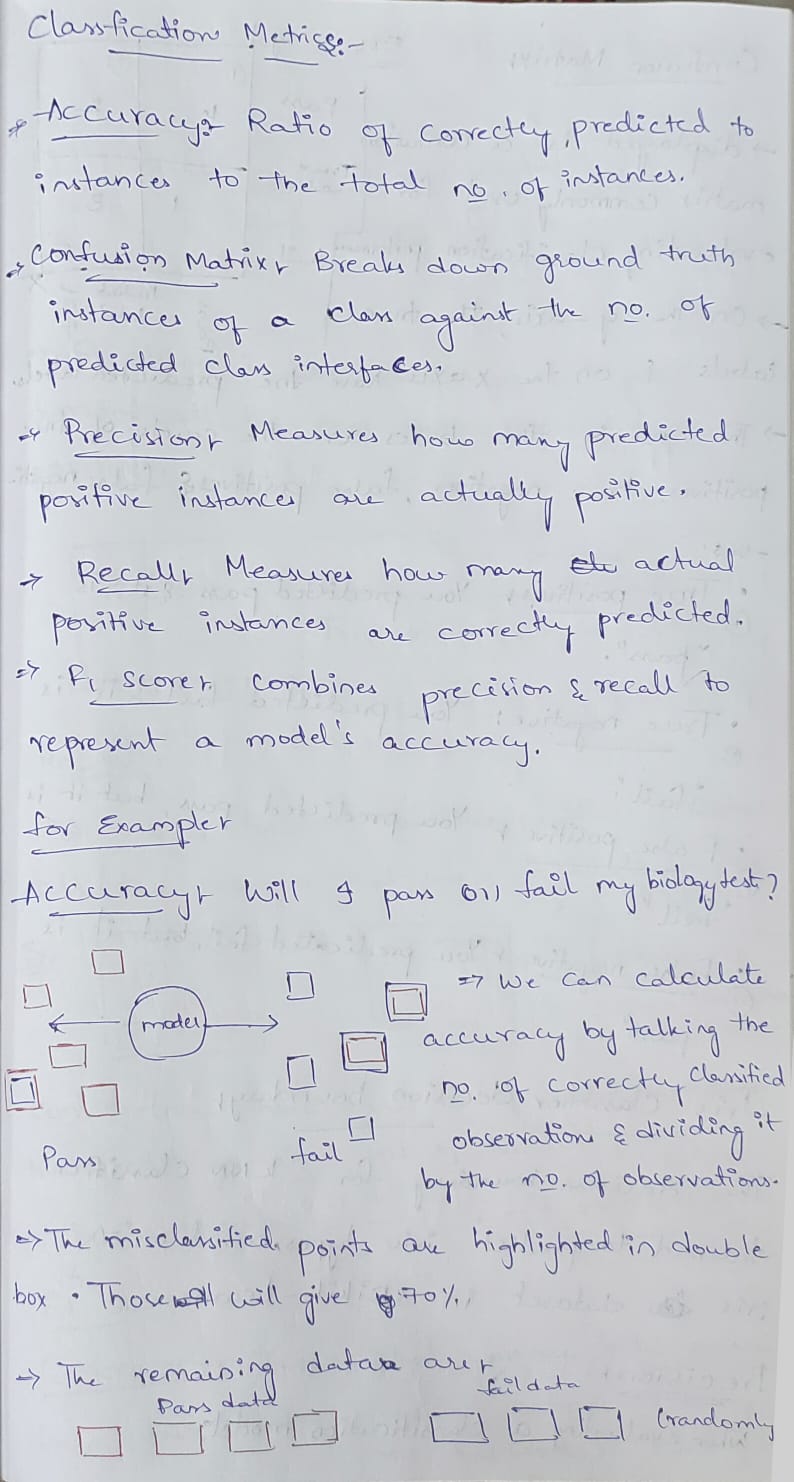 Classfication Metrics:-
* Accuracy:- Ratio of correctly predicted to
instances to the total no. of instances.
→ Confusion Matrix:- Breaks down ground truth
instances of a class against the no. of
predicted class interfaces.
→ Precision:- Measures how many predicted
positive instances are actually positive.
→ Recall:- Measures how many actual
positive instances are correctly predicted.
⇒ F1 score:- combines precision & recall to
represent a model's accuracy.
for Example:-
Accuracy:- Will I pass or fail my biology test?
model
⇒ We can calculate
accuracy by talking the
no. of correctly classified
observation & dividing it
by the no. of observations.
Pass
fail
⇒ The misclassified points are highlighted in double
box. Those will give 70%.
→ The remaining data are:-
Pass data
fail data
(randomly